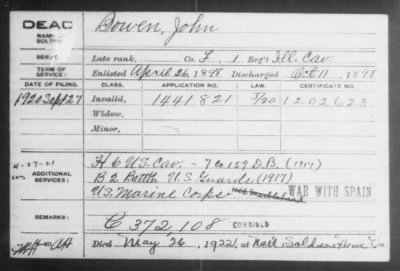 DEAD
Bowen, John
NAME OF SOLDIER:
SERVICE:
Late rank, Co. F, 1 Reg't Ill. Cav.
TERM OF SERVICE:
Enlisted April 26, 1898 Discharged Oct. 11, 1898
DATE OF FILING. CLASS. APPLICATION NO. LAW. CERTIFICATE NO.
1920 Sept 27 Invalid, 1441821 5/20 1202623
Widow,
Minor,
11-27-21
ADDITIONAL SERVICES:
H 6 U.S. Cav. - 7 Co 159 D.B. (1917)
B 2 Battn. U.S. Guards (1917)
U.S. Marine Corps WAR WITH SPAIN
REMARKS:
C 372,108 COMBINED
Died May 26, 1922, at Natl. Soldiers Home